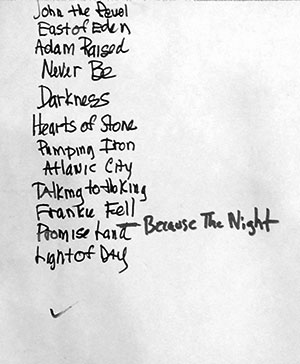 John the Revel
East of Eden
Adam Raised
Never Be
Darkness
Hearts of Stone
Pumping Iron
Atlantic City
Talking to the King
Frankie Fell
Promise Land - Because The Night
Light of Day